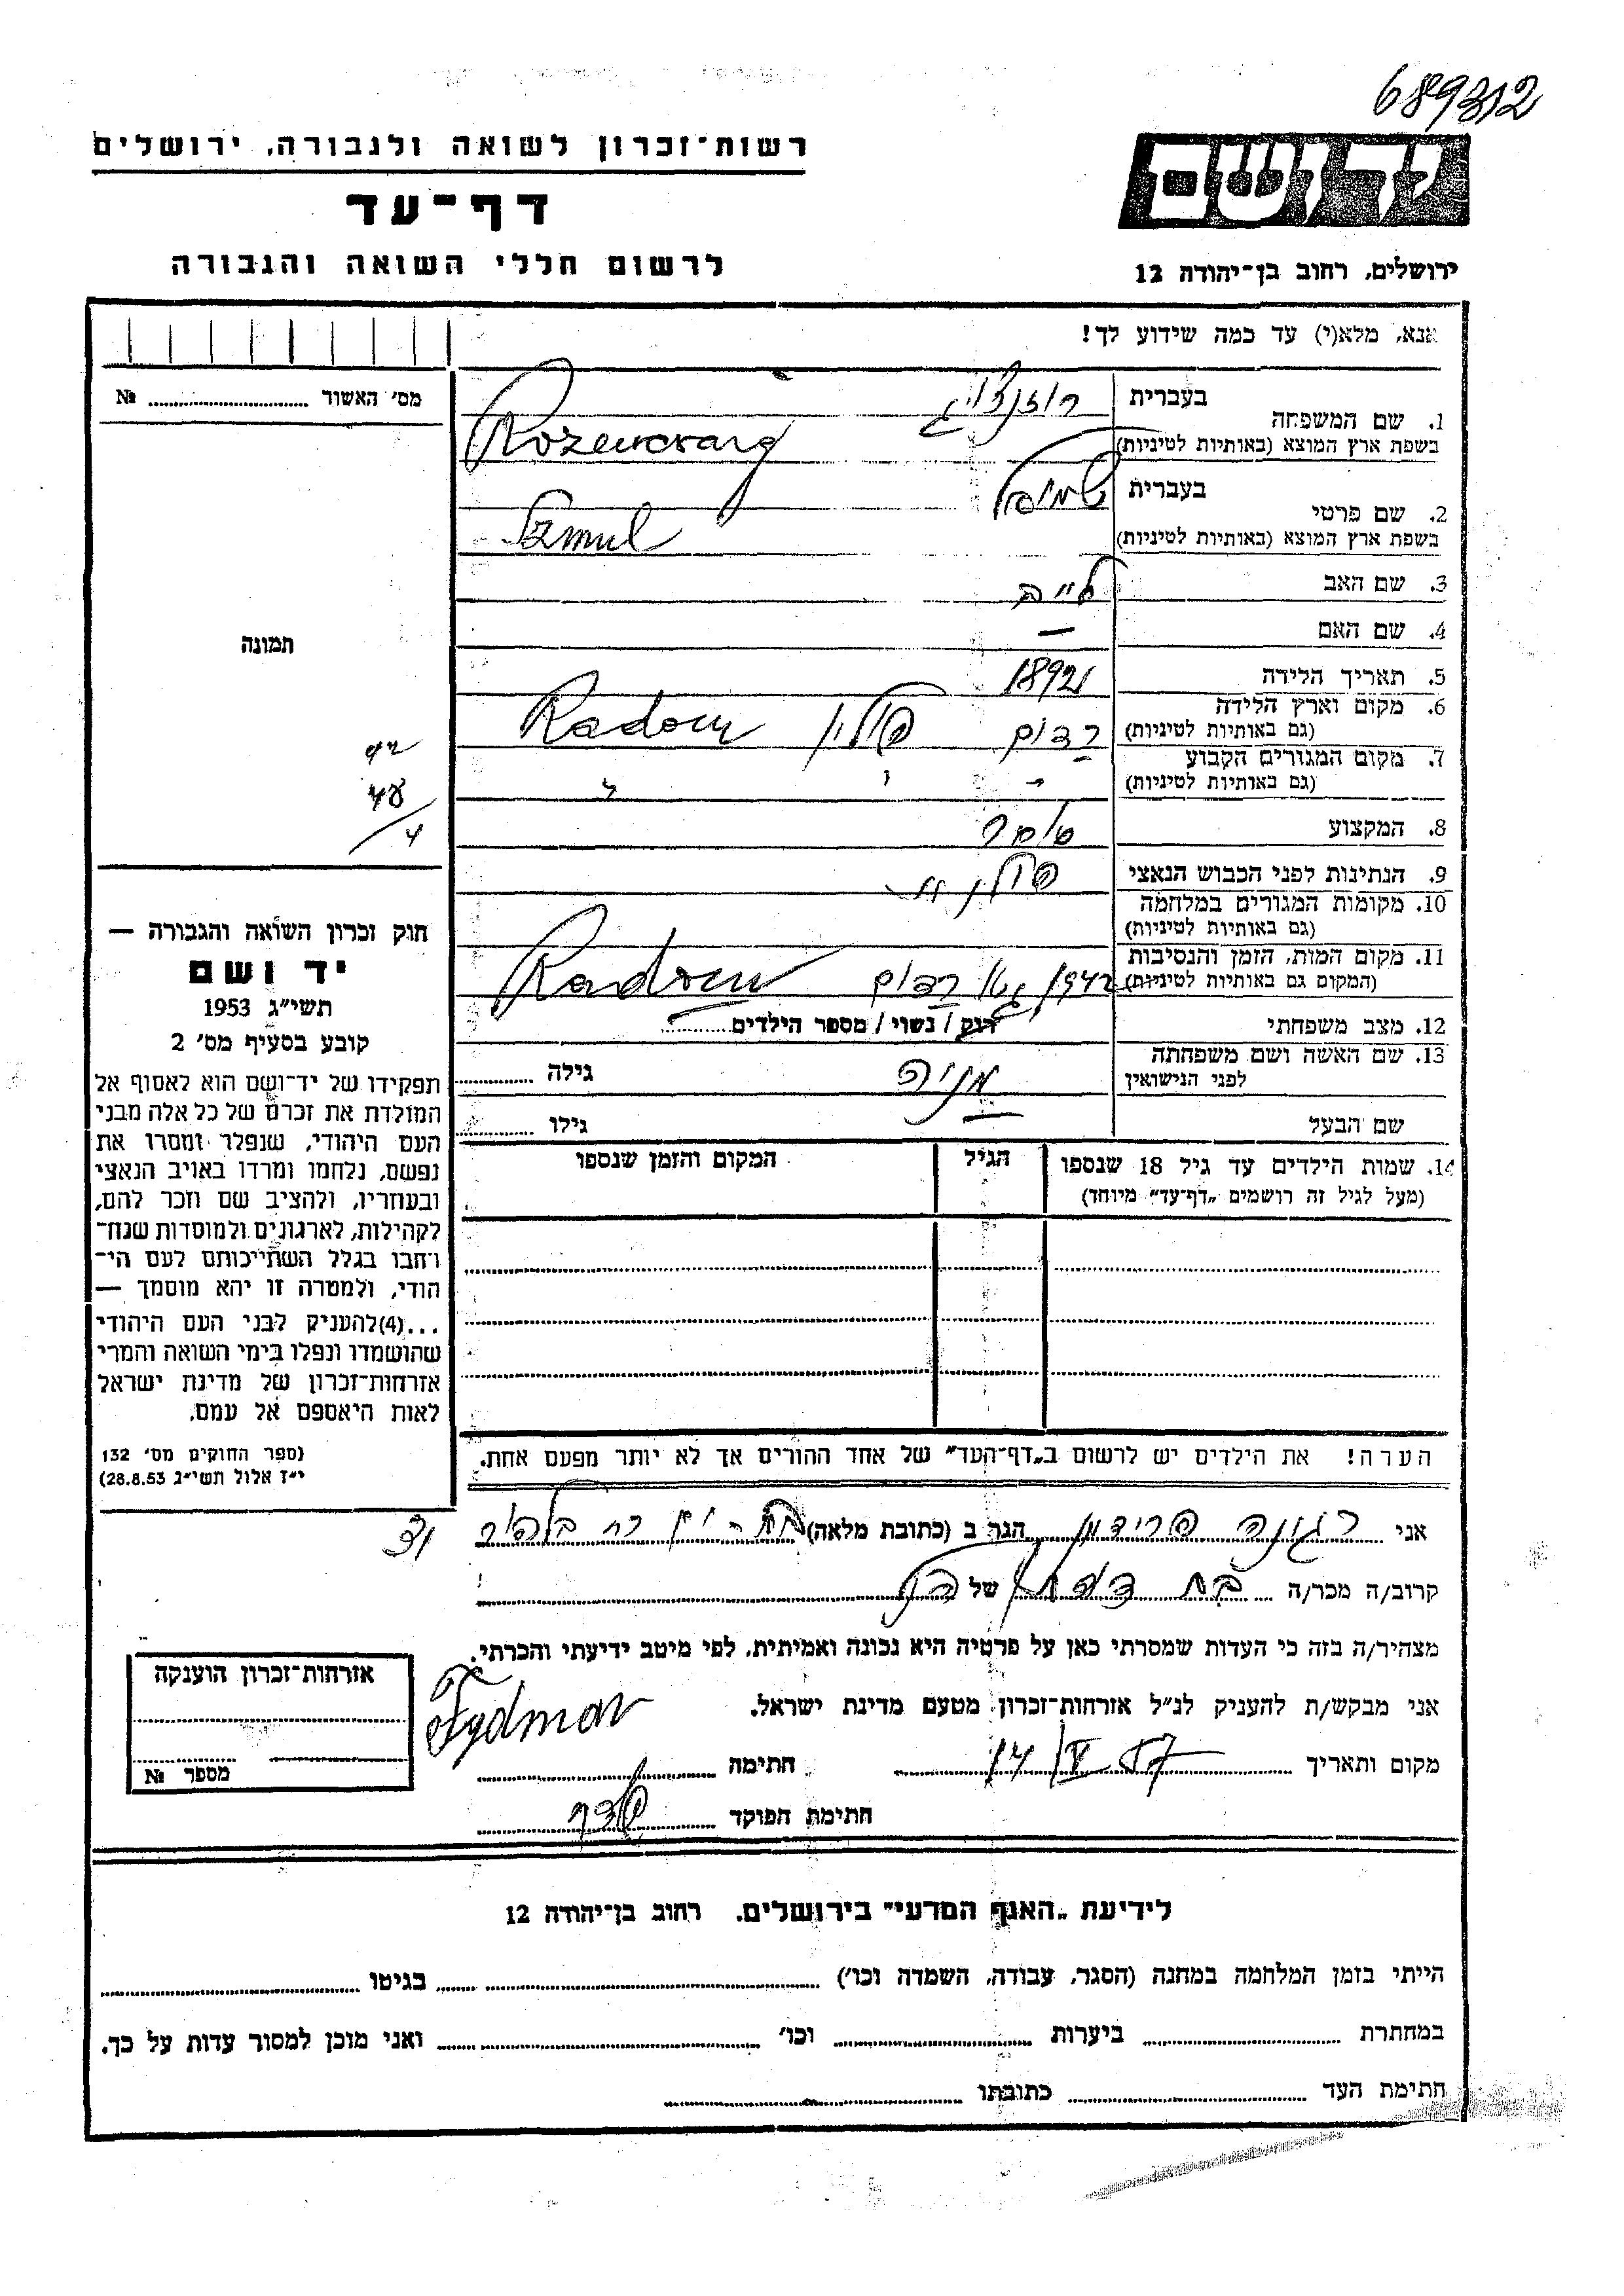 689312
רשות־זכרון לשואה ולגבורה, ירושלים
דף־עד
לרשום חללי השואה והגבורה
יד ושם
ירושלים, רחוב בן־יהודה 12
אנא, מלא(י) עד כמה שידוע לך!
מס׳ האשור № ..........
1. שם המשפחה
בעברית
בשפת ארץ המוצא (באותיות לטיניות)
Rozencwajg
2. שם פרטי
בעברית שמואל
בשפת ארץ המוצא (באותיות לטיניות) Szmul
3. שם האב
4. שם האם —
5. תאריך הלידה 1892
6. מקום וארץ הלידה (גם באותיות לטיניות) רדום פולין Radom
7. מקום המגורים הקבוע (גם באותיות לטיניות)
8. המקצוע
9. הנתינות לפני הכבוש הנאצי פולנית
10. מקומות המגורים במלחמה (גם באותיות לטיניות)
11. מקום המות, הזמן והנסיבות (המקום גם באותיות לטיניות) 1942 גטו רדום Radom
12. מצב משפחתי רוק / נשוי / מספר הילדים..........
13. שם האשה ושם משפחתה לפני הנישואין מניה גילה ..........
שם הבעל — גילו ..........
14. שמות הילדים עד גיל 18 שנספו
(מעל לגיל זה רושמים „דף־עד״ מיוחד)
הגיל
המקום והזמן שנספו
הערה! את הילדים יש לרשום ב„דף־העד״ של אחד ההורים אך לא יותר מפעם אחת.
תמונה
42
48
4
חוק זכרון השואה והגבורה —
יד ושם
תשי״ג 1953
קובע בסעיף מס׳ 2
תפקידו של יד־ושם הוא לאסוף אל
המולדת את זכרם של כל אלה מבני
העם היהודי, שנפלו ומסרו את
נפשם, נלחמו ומרדו באויב הנאצי
ובעוזריו, ולהציב שם וזכר להם,
לקהילות, לארגונים ולמוסדות שנח־
רבו בגלל השתייכותם לעם הי־
הודי, ולמטרה זו יהא מוסמך —
...(4) להעניק לבני העם היהודי
שהושמדו ונפלו בימי השואה והמרי
אזרחות־זכרון של מדינת ישראל
לאות היאספם אל עמם.
(ספר החוקים מס׳ 132
י״ז אלול תשי״ג 28.8.53)
אני רגינה פרידמן הגר ב (כתובת מלאה) בת־ים רח בלפור 31
קרוב/ה מכר/ה בת דודה של הנ״ל
מצהיר/ה בזה כי העדות שמסרתי כאן על פרטיה היא נכונה ואמיתית, לפי מיטב ידיעתי והכרתי.
אני מבקש/ת להעניק לנ״ל אזרחות־זכרון מטעם מדינת ישראל.
מקום ותאריך 14/V 57 חתימה Frydman
חתימת הפוקד
אזרחות־זכרון הוענקה
מספר №
לידיעת „האגף המדעי״ בירושלים, רחוב בן־יהודה 12
הייתי בזמן המלחמה במחנה (הסגר, עבודה, השמדה וכו׳) .......... בגיטו ..........
במחתרת .......... ביערות .......... וכו׳ .......... ואני מוכן למסור עדות על כך.
חתימת העד .......... כתובתו ..........